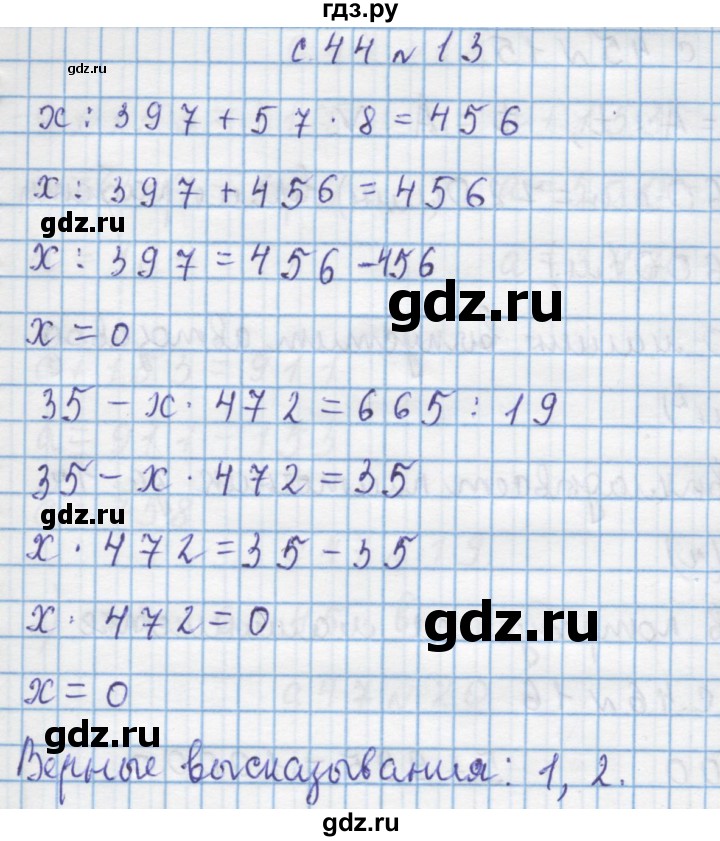 гдз.ру
с 44 № 13
gdz.ru
х : 397 + 57 · 8 = 456
х : 397 + 456 = 456
gdz.ru
х : 397 = 456 - 456
gdz.ru
х = 0
35 - х · 472 = 665 : 19
35 - х · 472 = 35
gdz.ru
х · 472 = 35 - 35
х · 472 = 0
gdz.ru
х = 0
gdz.ru
Верные высказывания: 1, 2.
gdz.ru